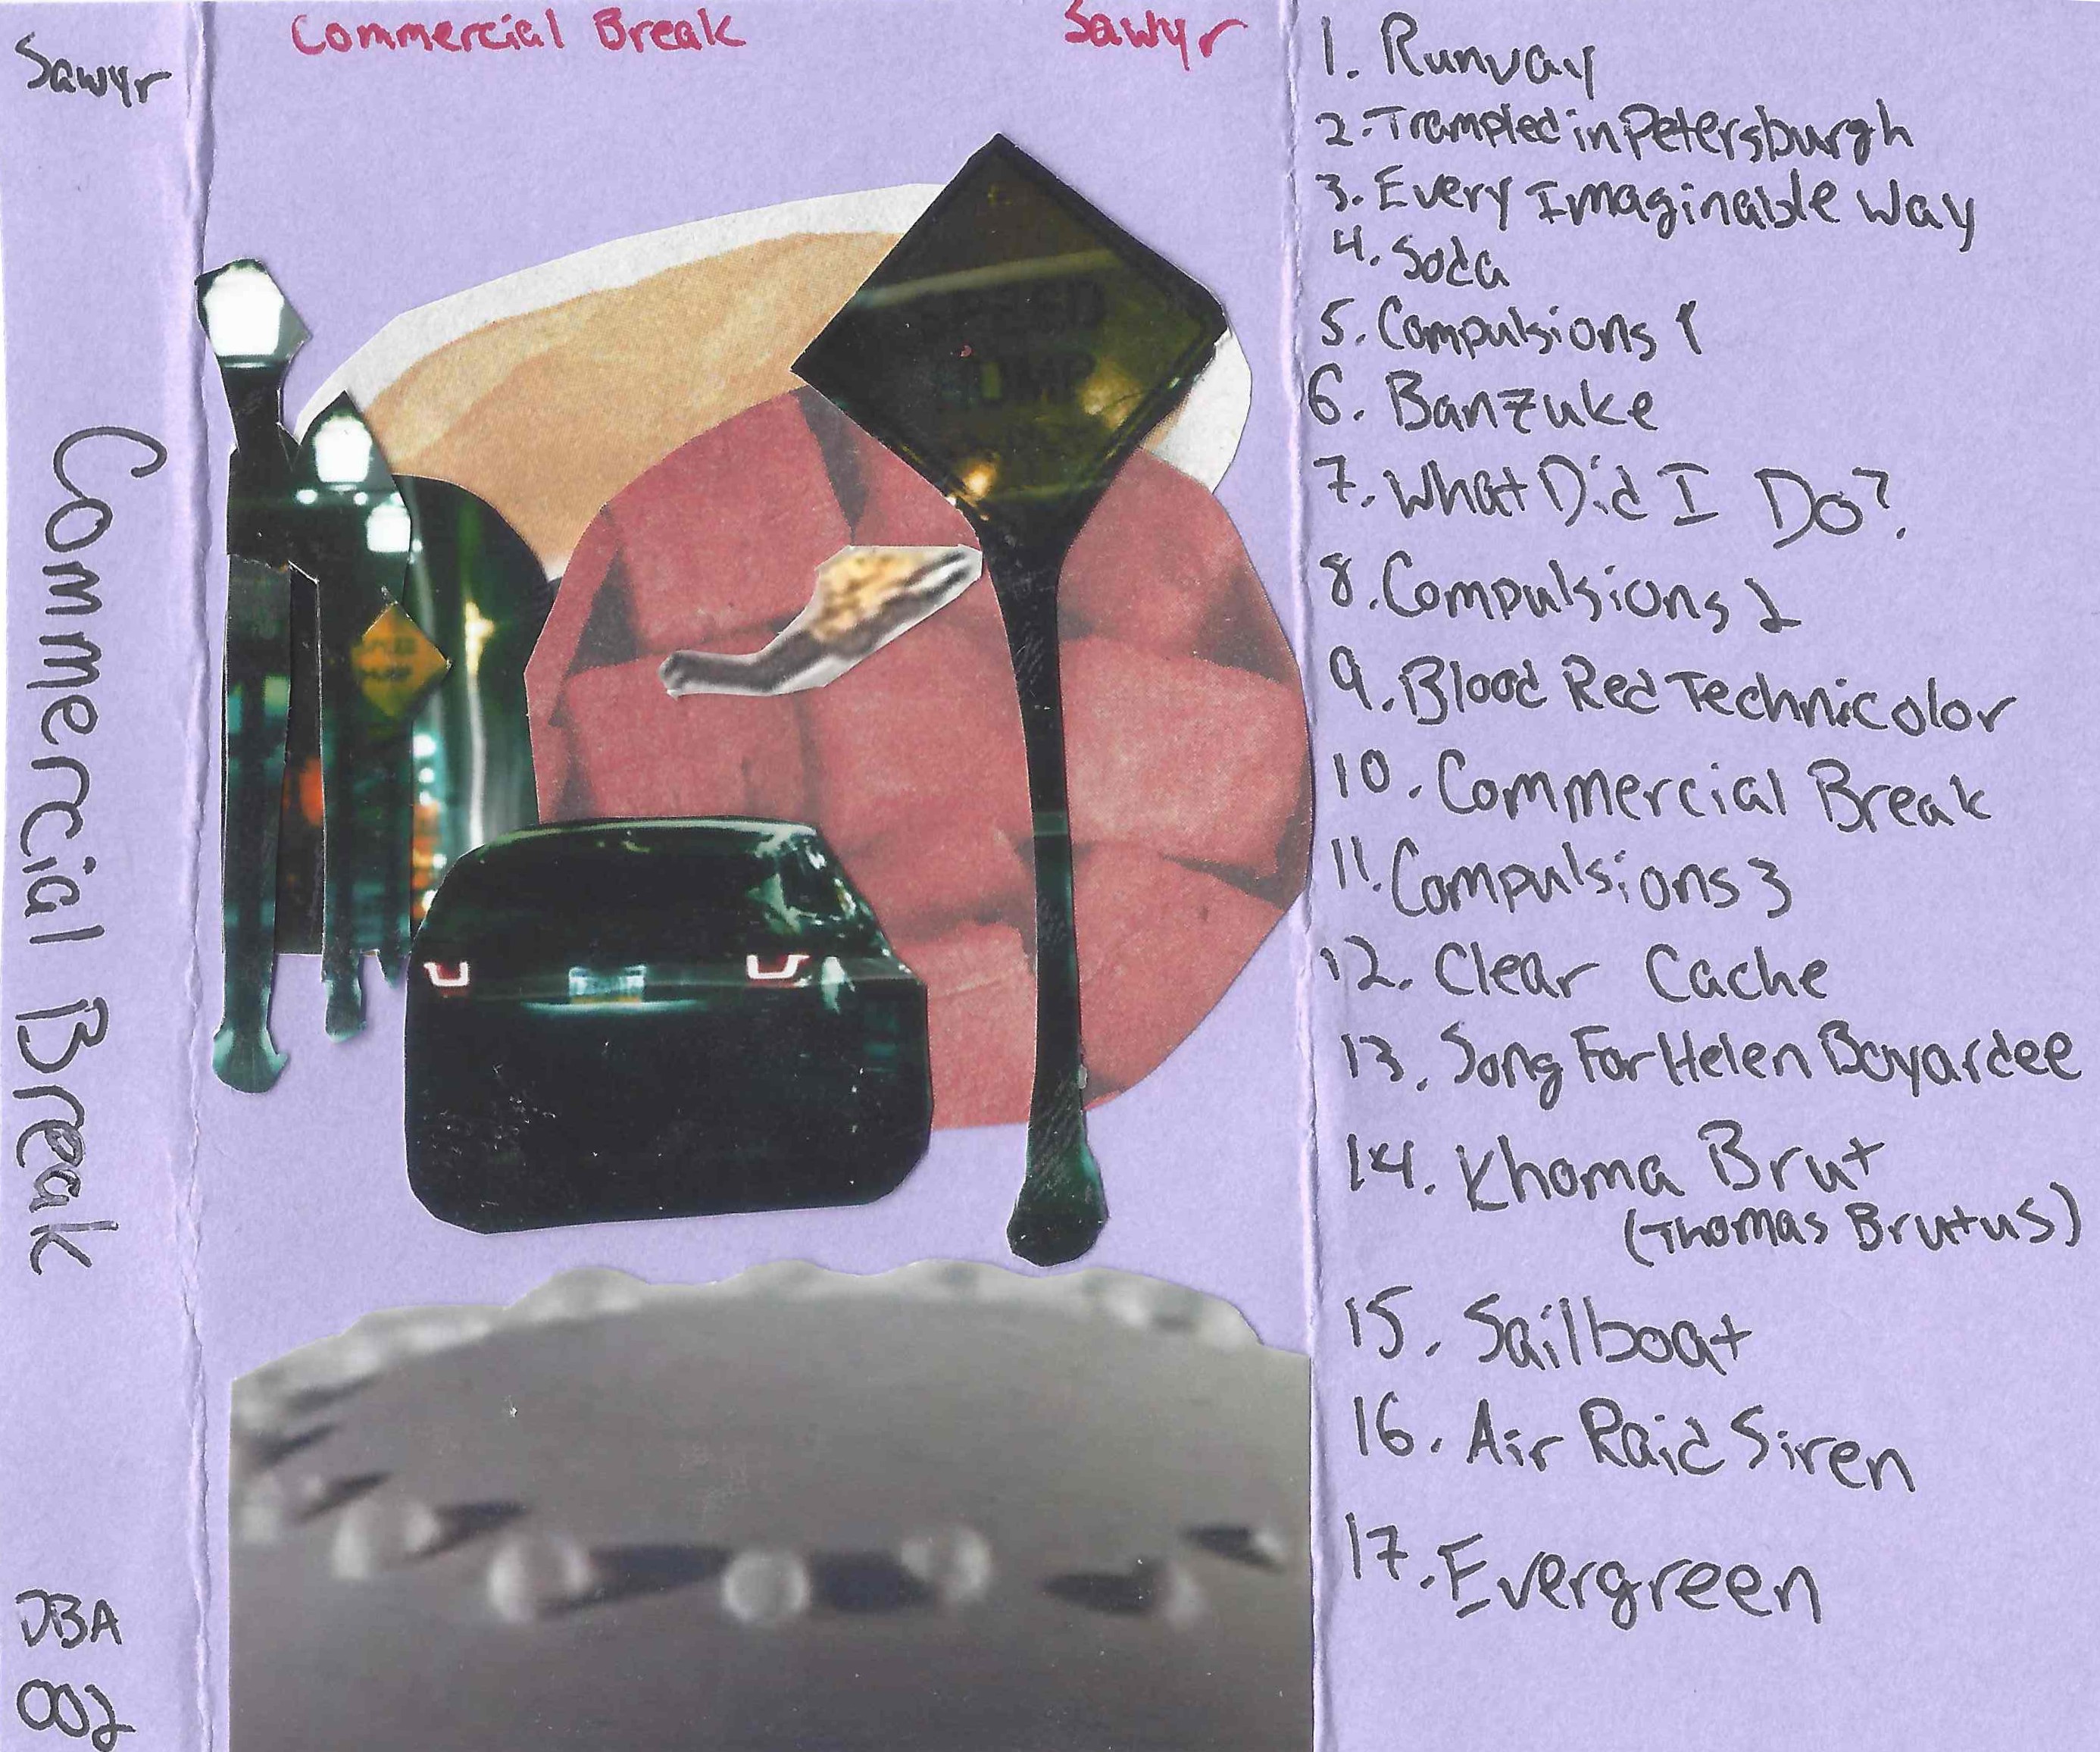 Sawyr
Commercial Break
DBA
002
Commercial Break
Sawyr
SPEED
HUMP
SPEED
HUMP
1. Runway
2. Trampled in Petersburgh
3. Every Imaginable Way
4. Soda
5. Compulsions 1
6. Banzuke
7. What Did I Do?
8. Compulsions 2
9. Blood Red Technicolor
10. Commercial Break
11. Compulsions 3
12. Clear Cache
13. Song For Helen Boyardee
14. Khoma Brut
(Thomas Brutus)
15. Sailboat
16. Air Raid Siren
17. Evergreen